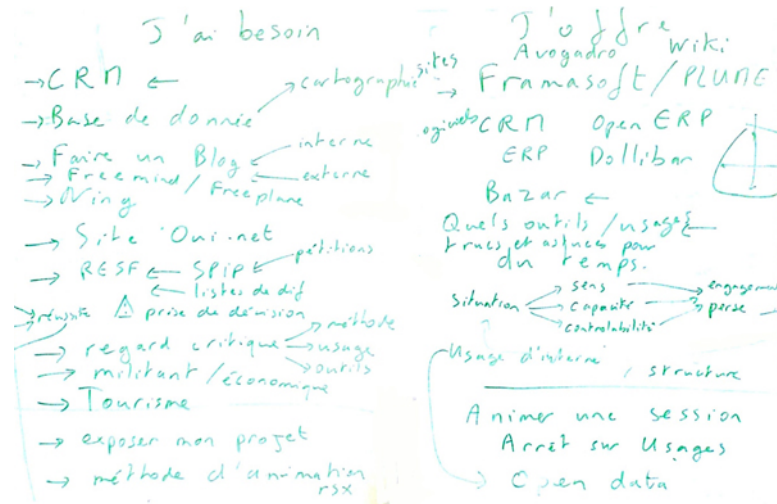 J'ai besoin
→ CRM ←
cartographie
→ Base de donnée
→ Faire un Blog
interne
→ Freemind / Freeplane
externe
→ Ning
→ Site Oui.net
→ RESF ← SPIP ← pétitions
← listes de dif
→ réussite ⚠ prise de décision
→ regard critique
méthode
usage
outils
→ militant / économique
→ Tourisme
→ exposer mon projet
→ méthode d'animation
rsx
J'offre
Avogadro Wiki
sites
→ Framasoft / PLUME
CRM Open ERP
ERP Dollibar
Bazar ←
Quels outils / usages ←
trucs et astuces pour
du temps.
situation
sens
capacité
controlabilité
perse
Usage d'interne
/ structure
Animer une session
Arrêt sur Usages
→ Open data